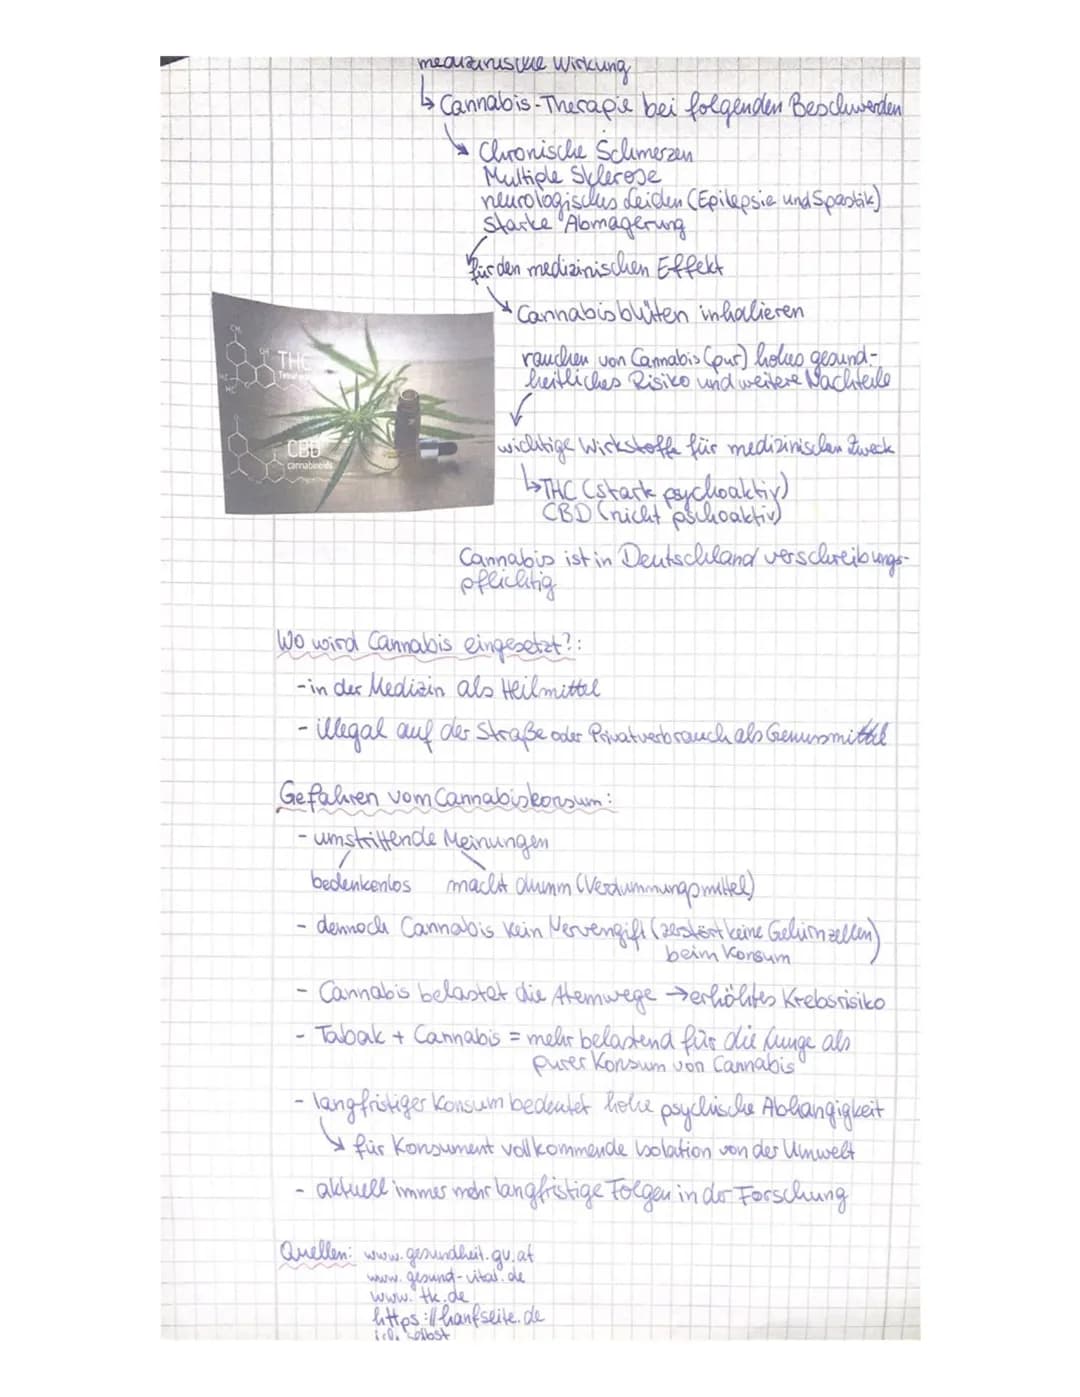 medizinische Wirkung
↳ Cannabis-Therapie bei folgenden Beschwerden
↘ Chronische Schmerzen
Multiple Sklerose
neurologisches Leiden (Epilepsie und Spastik)
starke Abmagerung
für den medizinischen Effekt
↘ Cannabisblüten inhalieren
rauchen von Cannabis (pur) hohes gesund-
heitliches Risiko und weitere Nachteile
wichtige Wirkstoffe für medizinischen Zweck
↳ THC (stark psychoaktiv)
CBD (nicht pschoaktiv)
Cannabis ist in Deutschland verschreibungs-
pflichtig
CH₃
OH
THC
H₃C
CBD
cannabinoids
Wo wird Cannabis eingesetzt?:
- in der Medizin als Heilmittel
- illegal auf der Straße oder Privatverbrauch als Genussmittel
Gefahren vom Cannabiskonsum:
- umstrittende Meinungen
bedenkenlos macht dumm (Verdummungsmittel)
- dennoch Cannabis kein Nervengift (zerstört keine Gehirnzellen)
beim Konsum
- Cannabis belastet die Atemwege → erhöhtes Krebsrisiko
- Tabak + Cannabis = mehr belastend für die Lunge als
purer Konsum von Cannabis
- langfristiger Konsum bedeutet hohe psychische Abhängigkeit
↘ für Konsument vollkommende Isolation von der Umwelt
- aktuell immer mehr langfristige Folgen in der Forschung
Quellen: www.gesundheit.gv.at
www.gesund-vital.de
www.tk.de
https://hanfseite.de
ich selbst